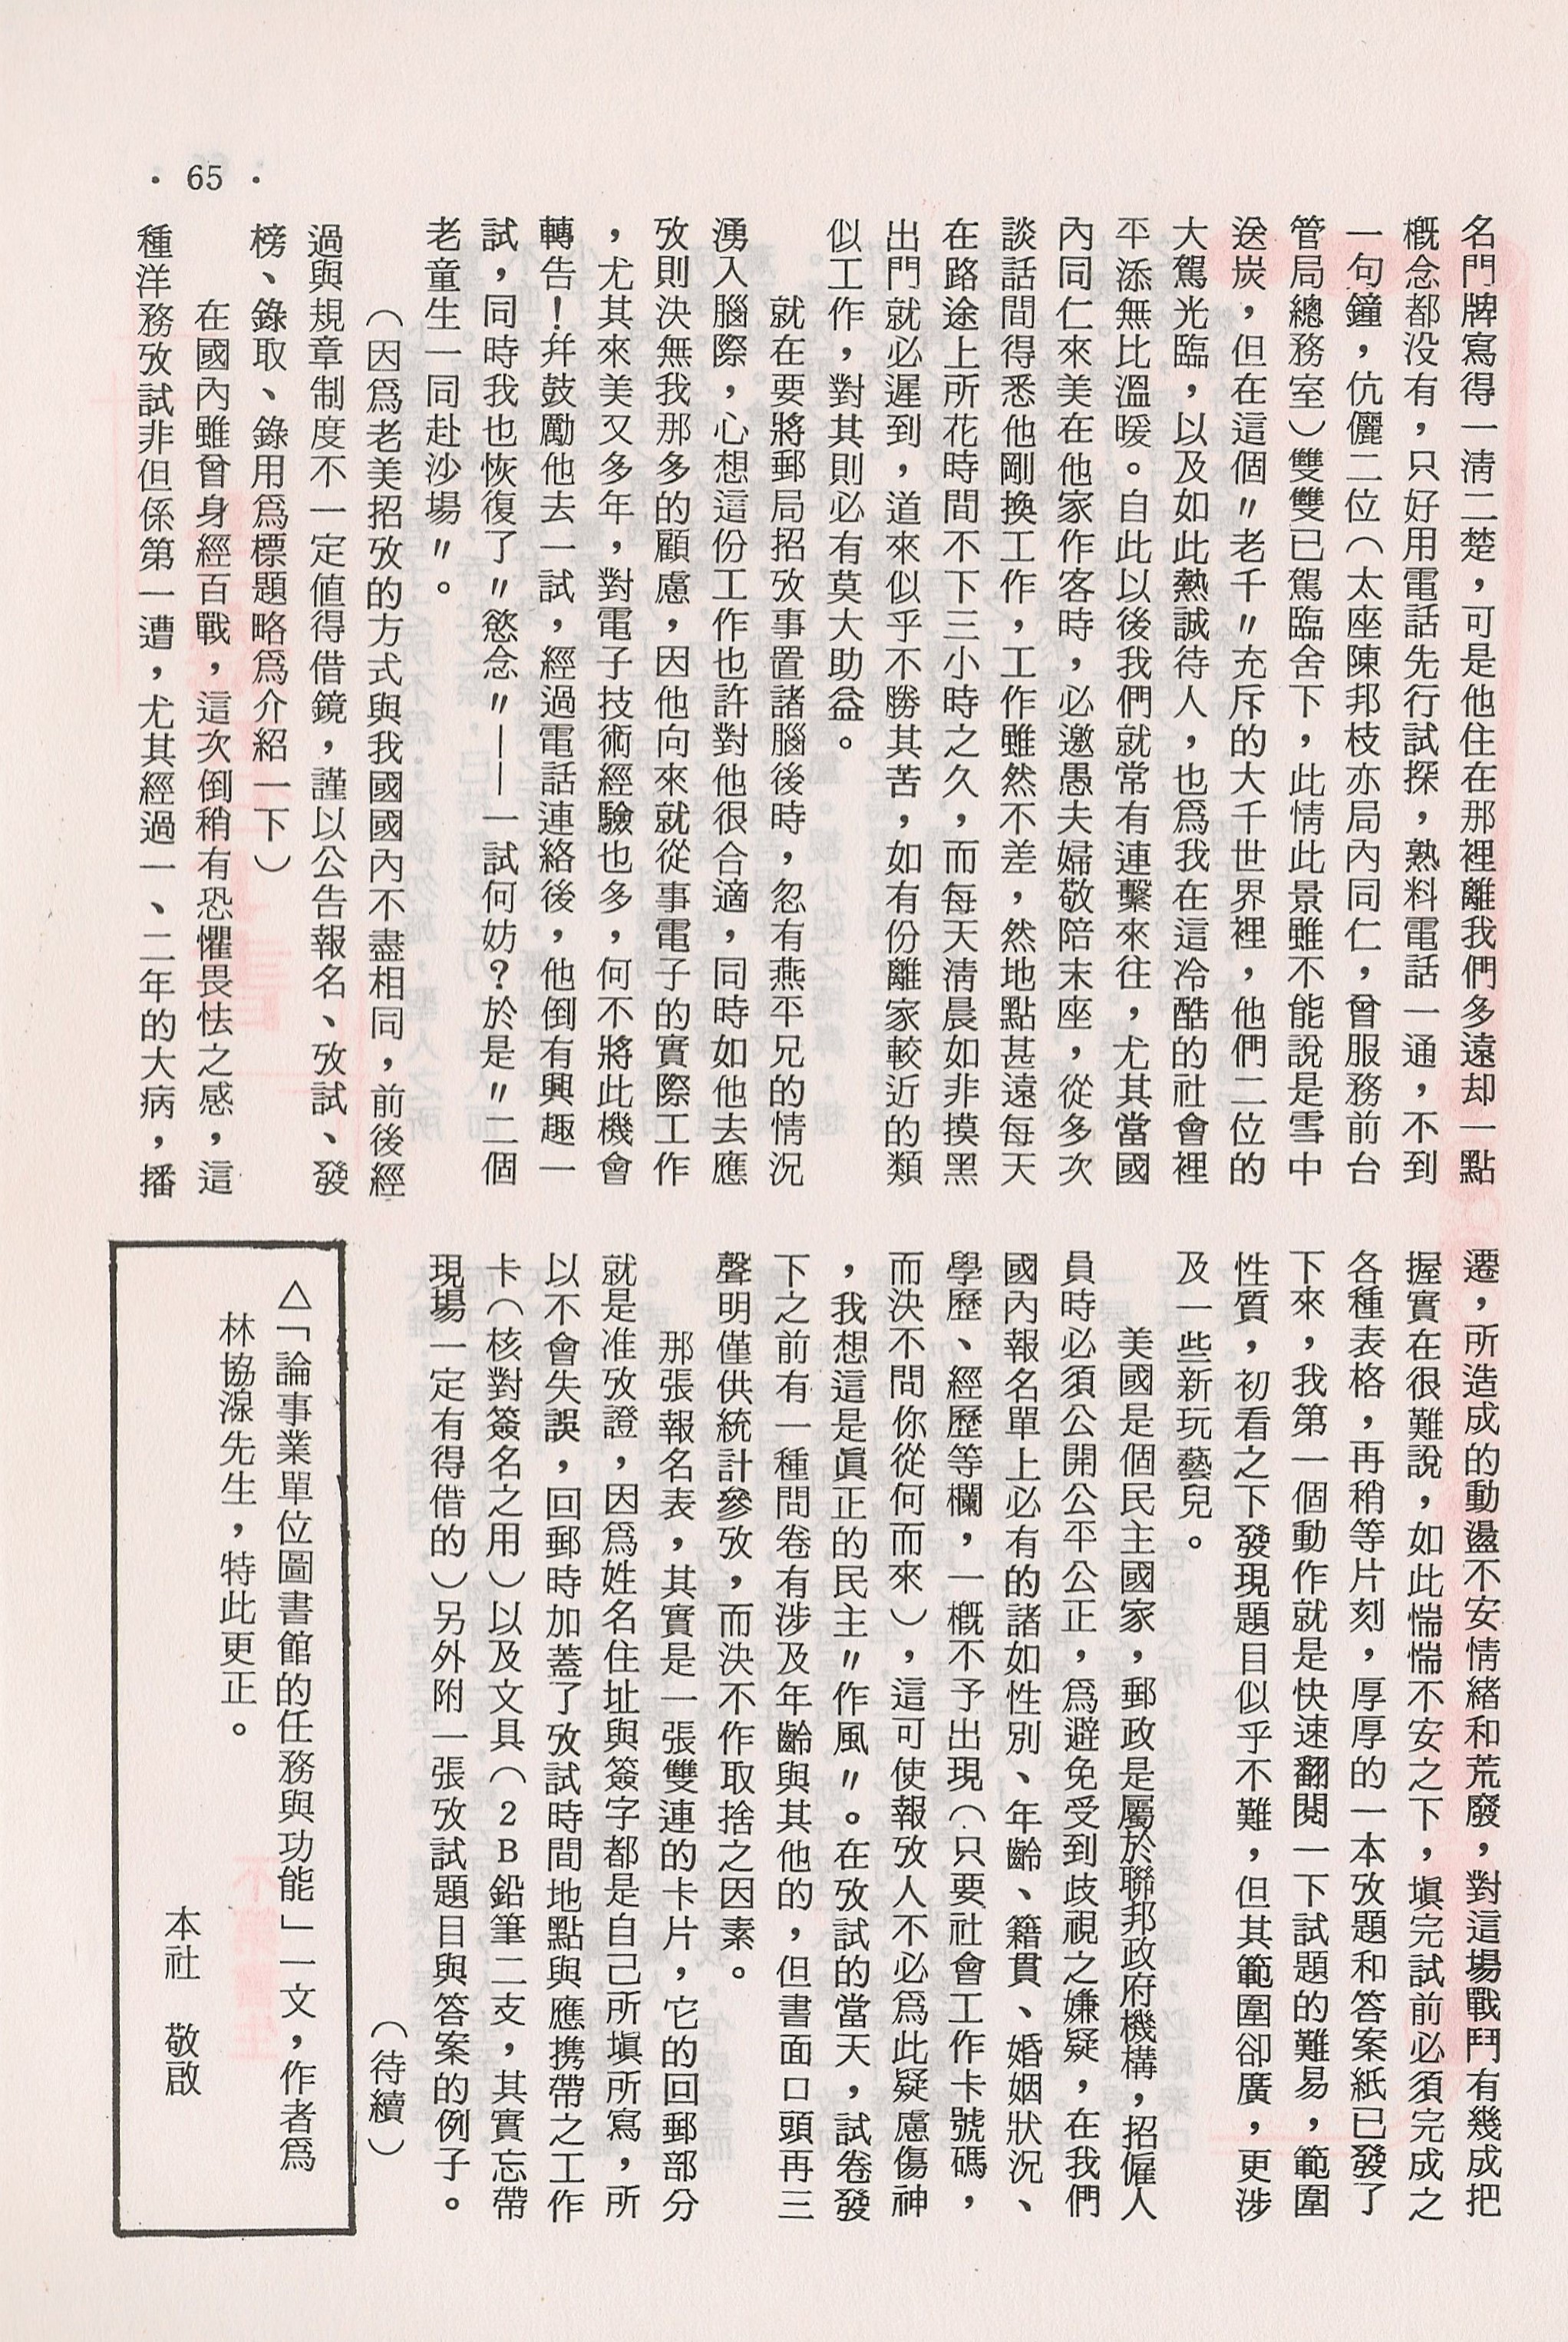 名門牌寫得一淸二楚，可是他住在那裡離我們多遠却一點
概念都没有，只好用電話先行試探，熟料電話一通，不到
一句鐘，伉儷二位（太座陳邦枝亦局內同仁，曾服務前台
管局總務室）雙雙已駕臨舍下，此情此景雖不能說是雪中
送炭，但在這個〃老千〃充斥的大千世界裡，他們二位的
大駕光臨，以及如此熱誠待人，也爲我在這冷酷的社會裡
平添無比溫暖。自此以後我們就常有連繫來往，尤其當國
內同仁來美在他家作客時，必邀愚夫婦敬陪末座，從多次
談話間得悉他剛換工作，工作雖然不差，然地點甚遠每天
在路途上所花時間不下三小時之久，而每天淸晨如非摸黑
出門就必遲到，道來似乎不勝其苦，如有份離家較近的類
似工作，對其則必有莫大助益。
就在要將郵局招攷事置諸腦後時，忽有燕平兄的情況
湧入腦際，心想這份工作也許對他很合適，同時如他去應
攷則決無我那多的顧慮，因他向來就從事電子的實際工作
，尤其來美又多年，對電子技術經驗也多，何不將此機會
轉告！幷鼓勵他去一試，經過電話連絡後，他倒有興趣一
試，同時我也恢復了〃慾念〃——一試何妨？於是〃二個
老童生一同赴沙場〃。
（因爲老美招攷的方式與我國國內不盡相同，前後經
過與規章制度不一定値得借鏡，謹以公告報名、攷試、發
榜、錄取、錄用爲標題略爲介紹一下）
在國內雖曾身經百戰，這次倒稍有恐懼畏怯之感，這
種洋務攷試非但係第一遭，尤其經過一、二年的大病，播
遷，所造成的動盪不安情緒和荒廢，對這場戰鬥有幾成把
握實在很難說，如此惴惴不安之下，塡完試前必須完成之
各種表格，再稍等片刻，厚厚的一本攷題和答案紙已發了
下來，我第一個動作就是快速翻閱一下試題的難易，範圍
性質，初看之下發現題目似乎不難，但其範圍卻廣，更涉
及一些新玩藝兒。
美國是個民主國家，郵政是屬於聯邦政府機構，招僱人
員時必須公開公平公正，爲避免受到歧視之嫌疑，在我們
國內報名單上必有的諸如性別、年齡、籍貫、婚姻狀況、
學歷、經歷等欄，一概不予出現（只要社會工作卡號碼，
而決不問你從何而來），這可使報攷人不必爲此疑慮傷神
，我想這是眞正的民主〃作風〃。在攷試的當天，試卷發
下之前有一種問卷有涉及年齡與其他的，但書面口頭再三
聲明僅供統計參攷，而決不作取捨之因素。
那張報名表，其實是一張雙連的卡片，它的回郵部分
就是准攷證，因爲姓名住址與簽字都是自己所塡所寫，所
以不會失誤，回郵時加蓋了攷試時間地點與應携帶之工作
卡（核對簽名之用）以及文具（2B鉛筆二支，其實忘帶
現場一定有得借的）另外附一張攷試題目與答案的例子。
（待續）
△「論事業單位圖書館的任務與功能」一文，作者爲
林協湶先生，特此更正。
本社　敬啟
· 65 ·